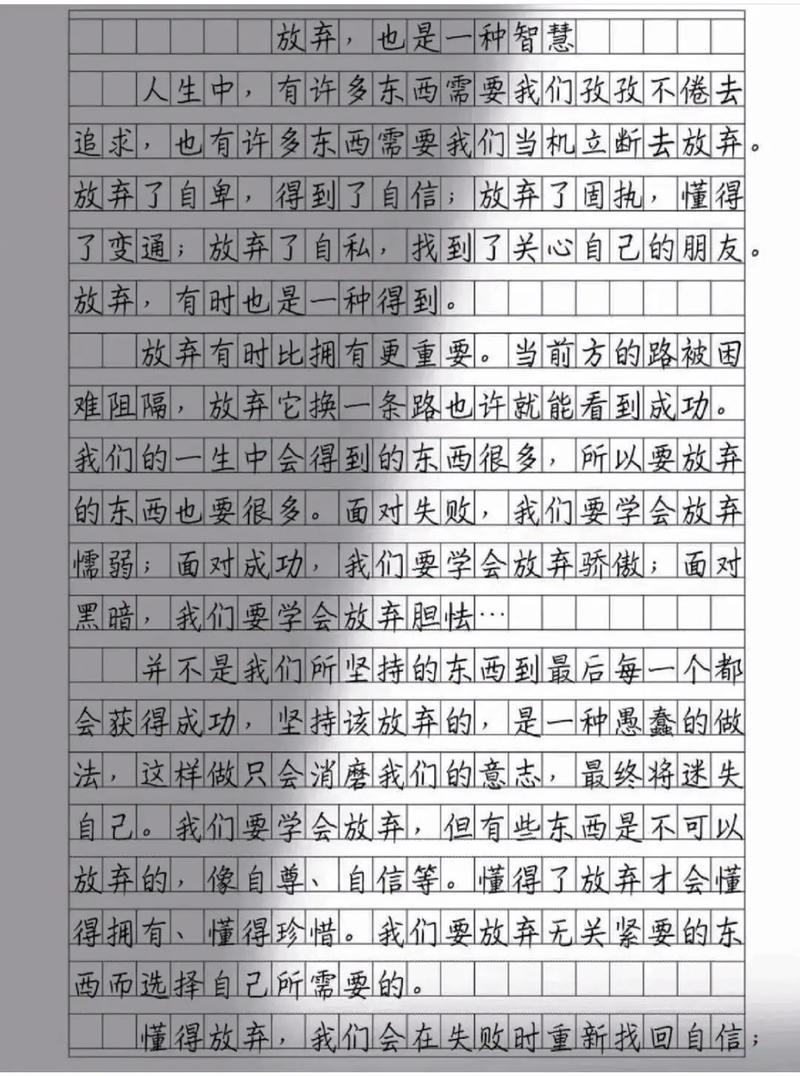 放弃，也是一种智慧
人生中，有许多东西需要我们孜孜不倦去
追求，也有许多东西需要我们当机立断去放弃。
放弃了自卑，得到了自信；放弃了固执，懂得
了变通；放弃了自私，找到了关心自己的朋友。
放弃，有时也是一种得到。
放弃有时比拥有更重要。当前方的路被困
难阻隔，放弃它换一条路也许就能看到成功。
我们的一生中会得到的东西很多，所以要放弃
的东西也要很多。面对失败，我们要学会放弃
懦弱；面对成功，我们要学会放弃骄傲；面对
黑暗，我们要学会放弃胆怯…
并不是我们所坚持的东西到最后每一个都
会获得成功，坚持该放弃的，是一种愚蠢的做
法，这样做只会消磨我们的意志，最终将迷失
自己。我们要学会放弃，但有些东西是不可以
放弃的，像自尊、自信等。懂得了放弃才会懂
得拥有、懂得珍惜。我们要放弃无关紧要的东
西而选择自己所需要的。
懂得放弃，我们会在失败时重新找回自信；